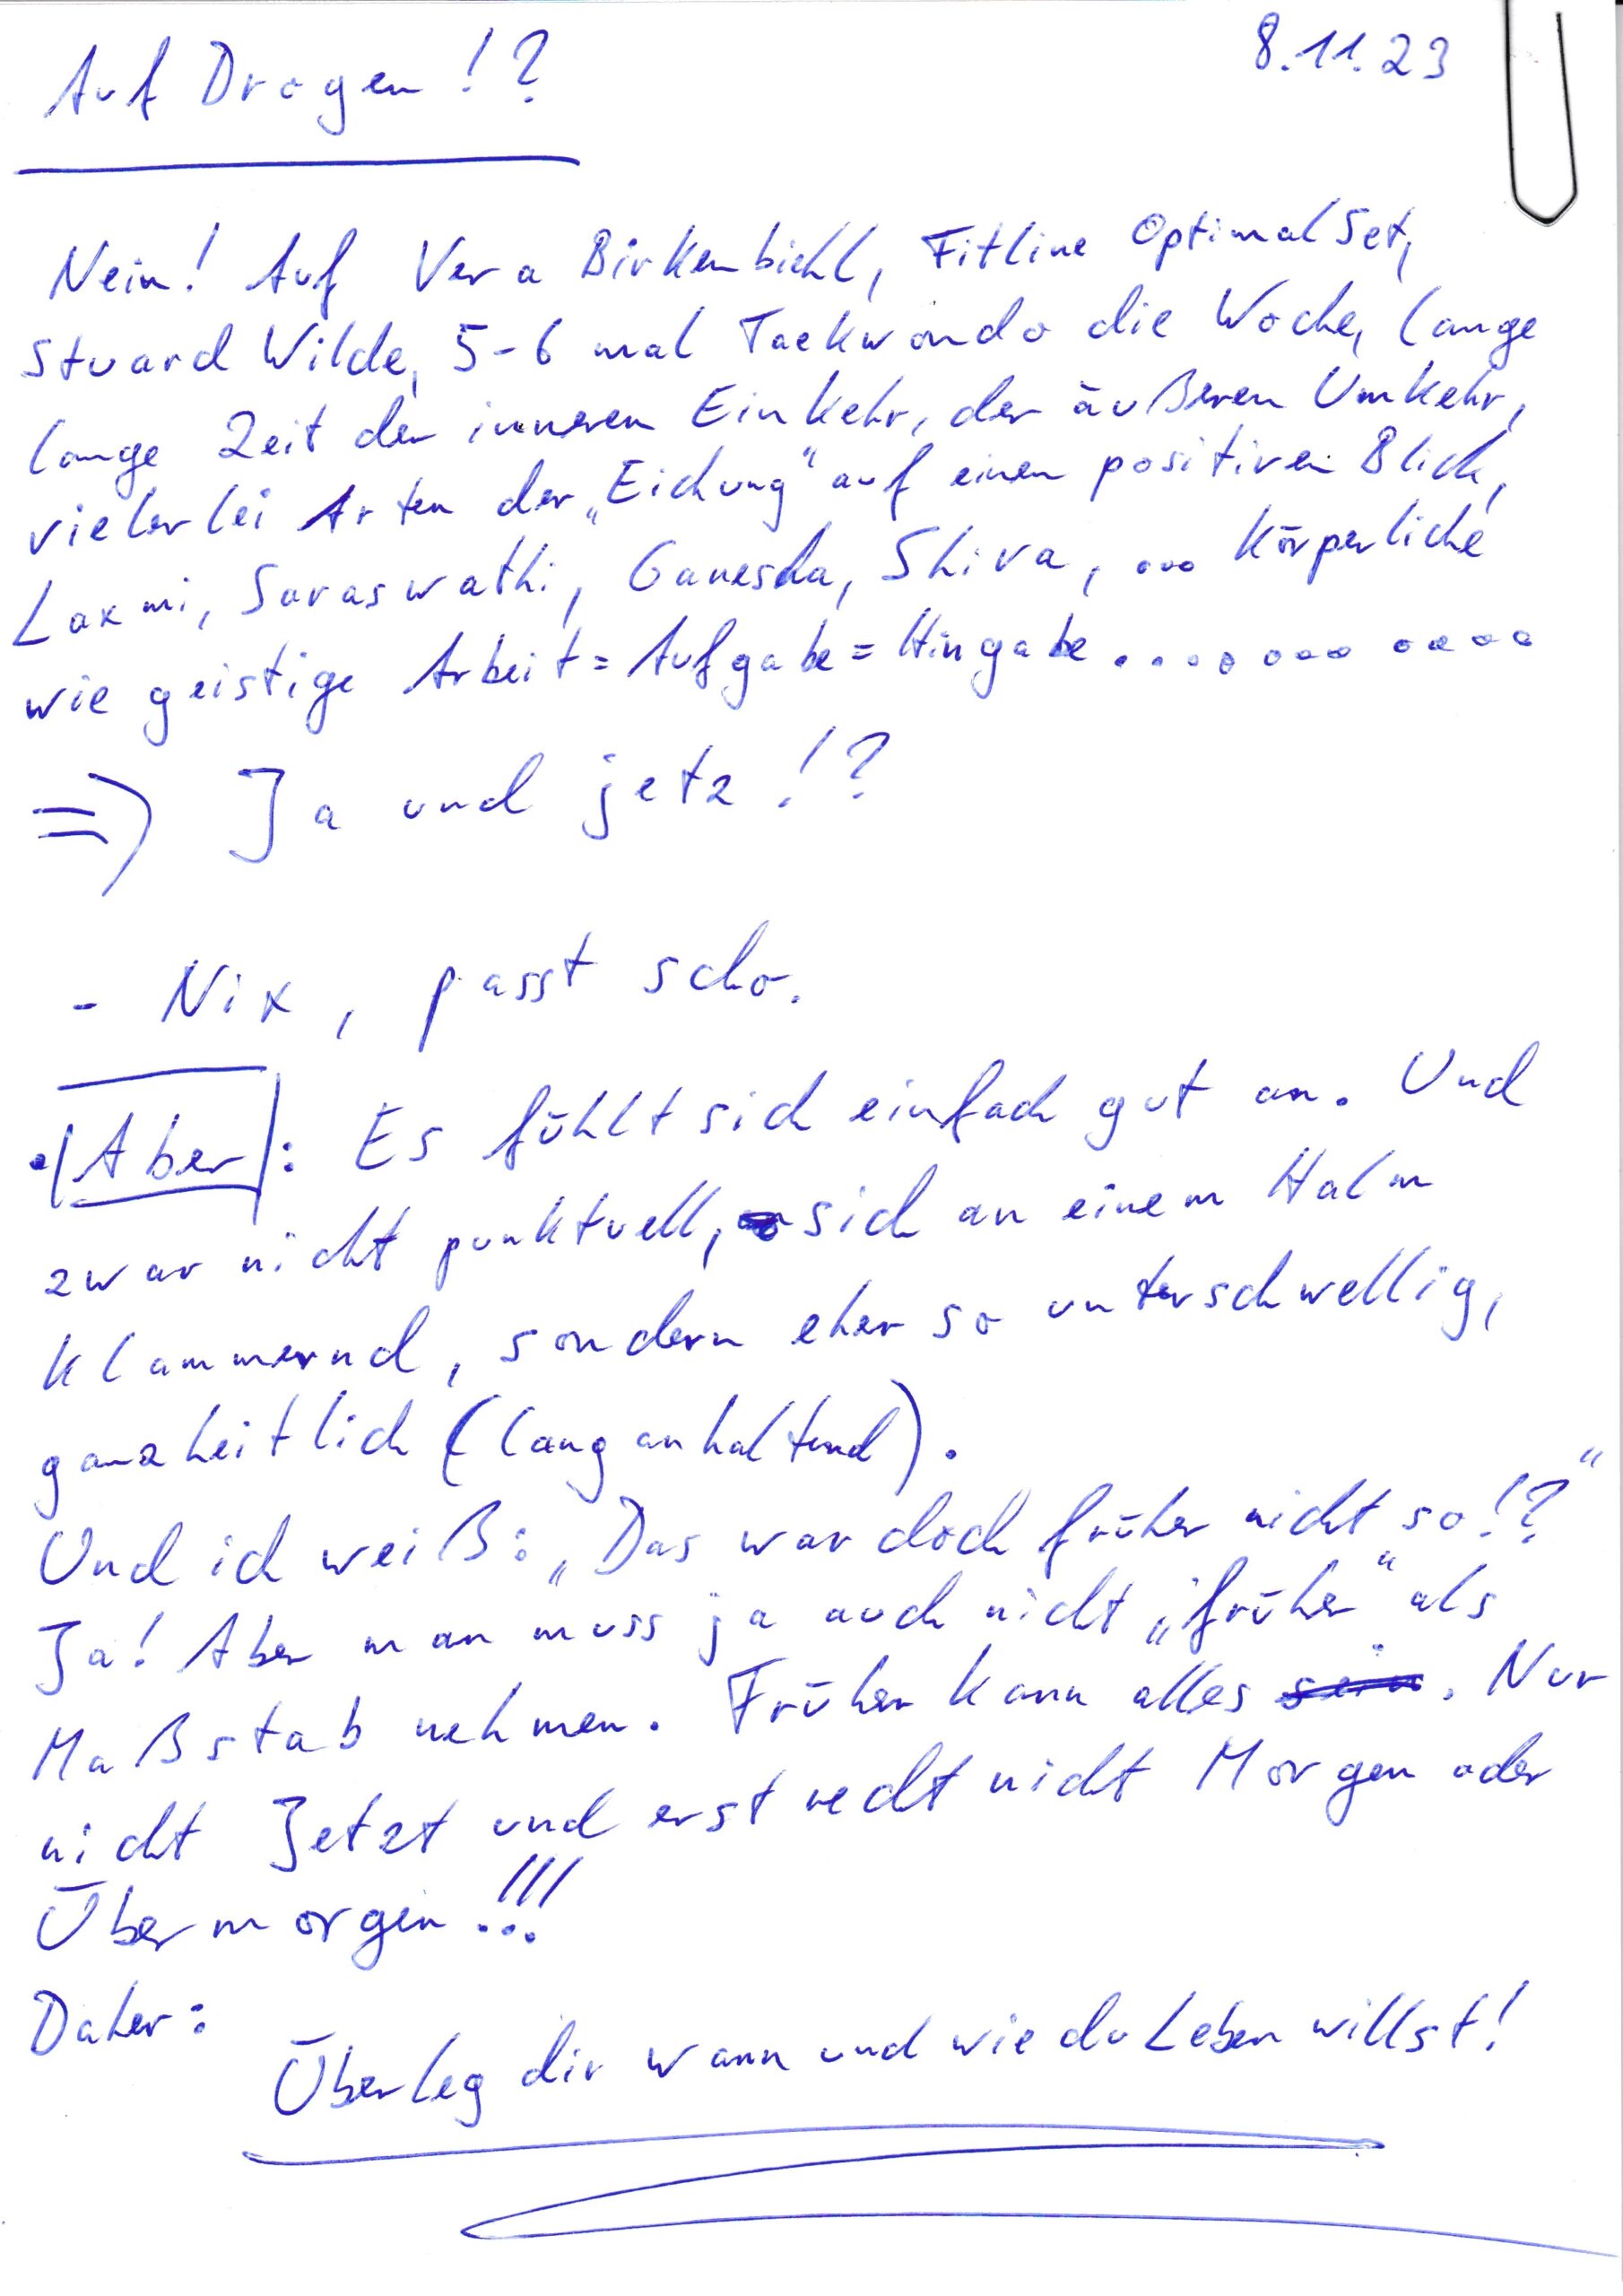 8.11.23
Auf Drogen!?
Nein! Auf Vera Birkenbiehl, Fitline Optimal Set,
Stuard Wilde, 5-6 mal Taekwondo die Woche, lange
lange Zeit der inneren Einkehr, der äußeren Umkehr,
vielerlei Arten der „Eichung“ auf einen positiven Blick,
Laxmi, Saraswathi, Ganesha, Shiva, ... Körperliche
wie geistige Arbeit = Aufgabe = Hingabe ............
=> Ja und jetz!?
- Nix, passt scho.
• Aber: Es fühlt sich einfach gut an. Und
zwar nicht punktuell, sich an einem Halm
klammernd, sondern eher so unterschwellig,
ganzheitlich (lang anhaltend).
Und ich weiß: „Das war doch früher nicht so!?“
Ja! Aber man muss ja auch nicht „früher“ als
Maßstab nehmen. Früher kann alles sein. Nur
nicht Jetzt und erst recht nicht Morgen oder
Übermorgen!!!
Daher:
Überleg dir wann und wie du Leben willst!